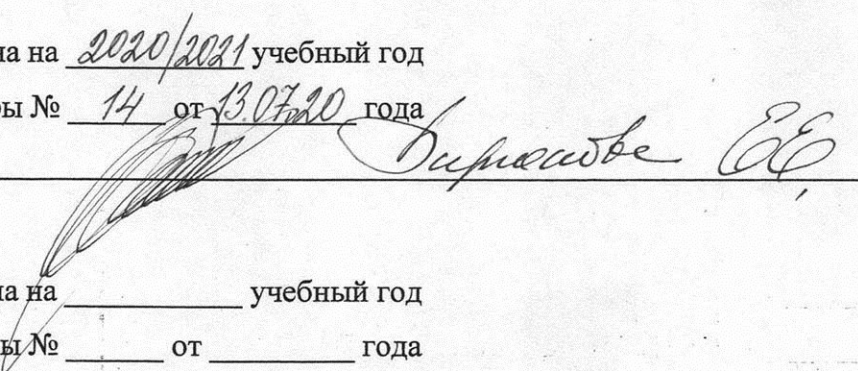 на на 2020/2021 учебный год
ры № 14 от 13.07.20 года
Е Е
на на учебный год
ры № от года